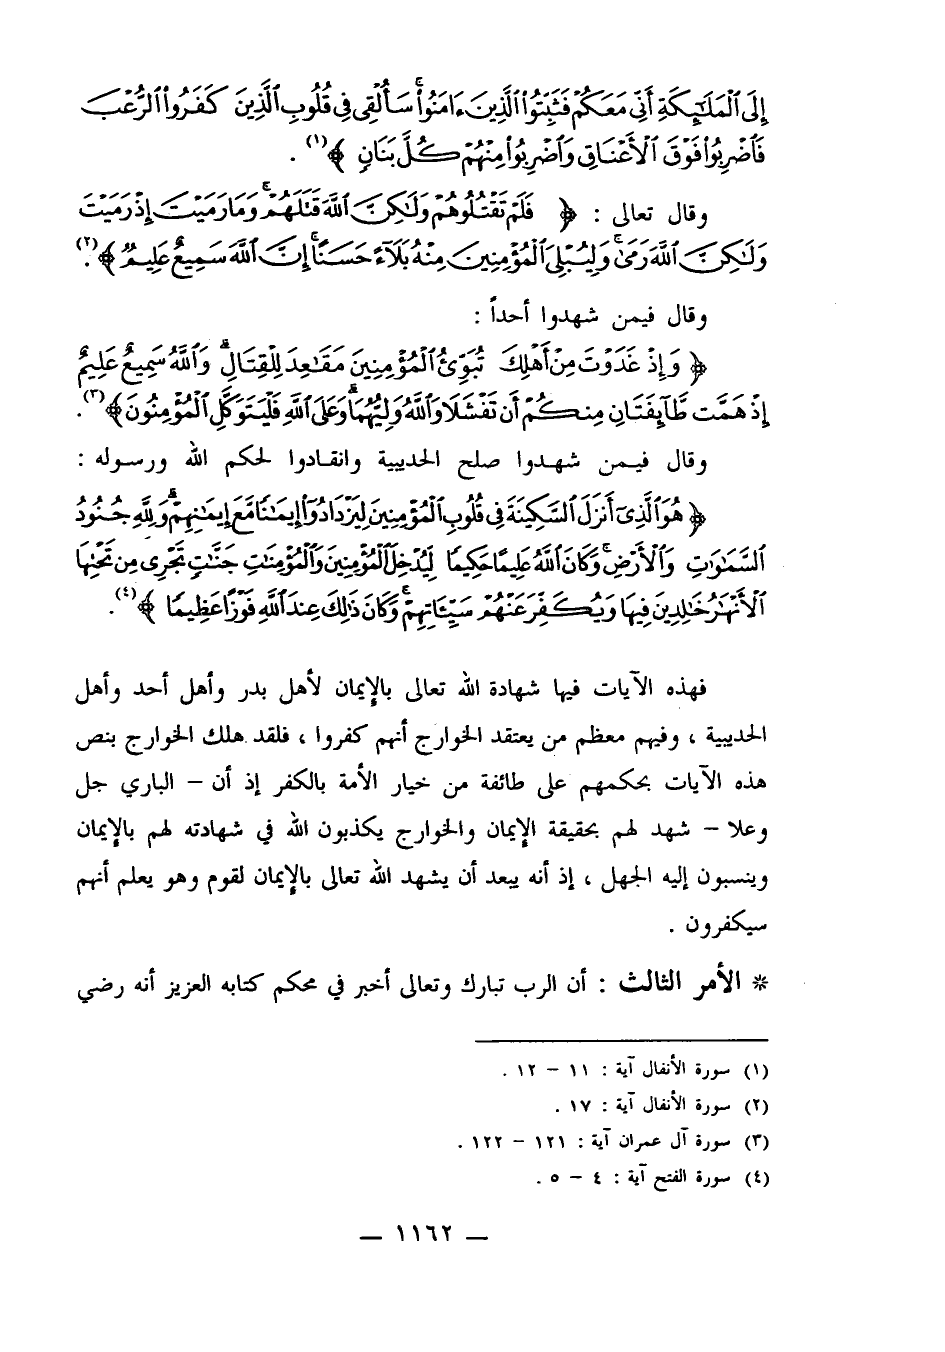 إِلَى ٱلْمَلَـٰٓئِكَةِ أَنِّى مَعَكُمْ فَثَبِّتُوا۟ ٱلَّذِينَ ءَامَنُوا۟ ۚ سَأُلْقِى فِى قُلُوبِ ٱلَّذِينَ كَفَرُوا۟ ٱلرُّعْبَ
فَٱضْرِبُوا۟ فَوْقَ ٱلْأَعْنَاقِ وَٱضْرِبُوا۟ مِنْهُمْ كُلَّ بَنَانٍ ﴾(١) .
وقال تعالى : ﴿ فَلَمْ تَقْتُلُوهُمْ وَلَـٰكِنَّ ٱللَّهَ قَتَلَهُمْ ۚ وَمَا رَمَيْتَ إِذْ رَمَيْتَ
وَلَـٰكِنَّ ٱللَّهَ رَمَىٰ ۚ وَلِيُبْلِىَ ٱلْمُؤْمِنِينَ مِنْهُ بَلَآءً حَسَنًا ۚ إِنَّ ٱللَّهَ سَمِيعٌ عَلِيمٌ ﴾(٢).
وقال فيمن شهدوا أحداً :
﴿ وَإِذْ غَدَوْتَ مِنْ أَهْلِكَ تُبَوِّئُ ٱلْمُؤْمِنِينَ مَقَـٰعِدَ لِلْقِتَالِ ۗ وَٱللَّهُ سَمِيعٌ عَلِيمٌ
إِذْ هَمَّت طَّآئِفَتَانِ مِنكُمْ أَن تَفْشَلَا وَٱللَّهُ وَلِيُّهُمَا ۗ وَعَلَى ٱللَّهِ فَلْيَتَوَكَّلِ ٱلْمُؤْمِنُونَ ﴾(٣).
وقال فيمن شهدوا صلح الحديبية وانقادوا لحكم الله ورسوله :
﴿ هُوَ ٱلَّذِىٓ أَنزَلَ ٱلسَّكِينَةَ فِى قُلُوبِ ٱلْمُؤْمِنِينَ لِيَزْدَادُوٓا۟ إِيمَـٰنًا مَّعَ إِيمَـٰنِهِمْ ۗ وَلِلَّهِ جُنُودُ
ٱلسَّمَـٰوَٰتِ وَٱلْأَرْضِ ۚ وَكَانَ ٱللَّهُ عَلِيمًا حَكِيمًا لِّيُدْخِلَ ٱلْمُؤْمِنِينَ وَٱلْمُؤْمِنَـٰتِ جَنَّـٰتٍ تَجْرِى مِن تَحْتِهَا
ٱلْأَنْهَـٰرُ خَـٰلِدِينَ فِيهَا وَيُكَفِّرَ عَنْهُمْ سَيِّـَٔاتِهِمْ ۚ وَكَانَ ذَٰلِكَ عِندَ ٱللَّهِ فَوْزًا عَظِيمًا ﴾(٤).
فهذه الآيات فيها شهادة الله تعالى بالإيمان لأهل بدر وأهل أحد وأهل
الحديبية ، وفيهم معظم من يعتقد الخوارج أنهم كفروا ، فلقد هلك الخوارج بنص
هذه الآيات بحكمهم على طائفة من خيار الأمة بالكفر إذ أن – الباري جل
وعلا – شهد لهم بحقيقة الإيمان والخوارج يكذبون الله في شهادته لهم بالإيمان
وينسبون إليه الجهل ، إذ أنه يبعد أن يشهد الله تعالى بالإيمان لقوم وهو يعلم أنهم
سيكفرون .
* الأمر الثالث : أن الرب تبارك وتعالى أخبر في محكم كتابه العزيز أنه رضي
(١) سورة الأنفال آية : ١١ – ١٢ .
(٢) سورة الأنفال آية : ١٧ .
(٣) سورة آل عمران آية : ١٢١ – ١٢٢ .
(٤) سورة الفتح آية : ٤ – ٥ .
— ١١٦٢ —